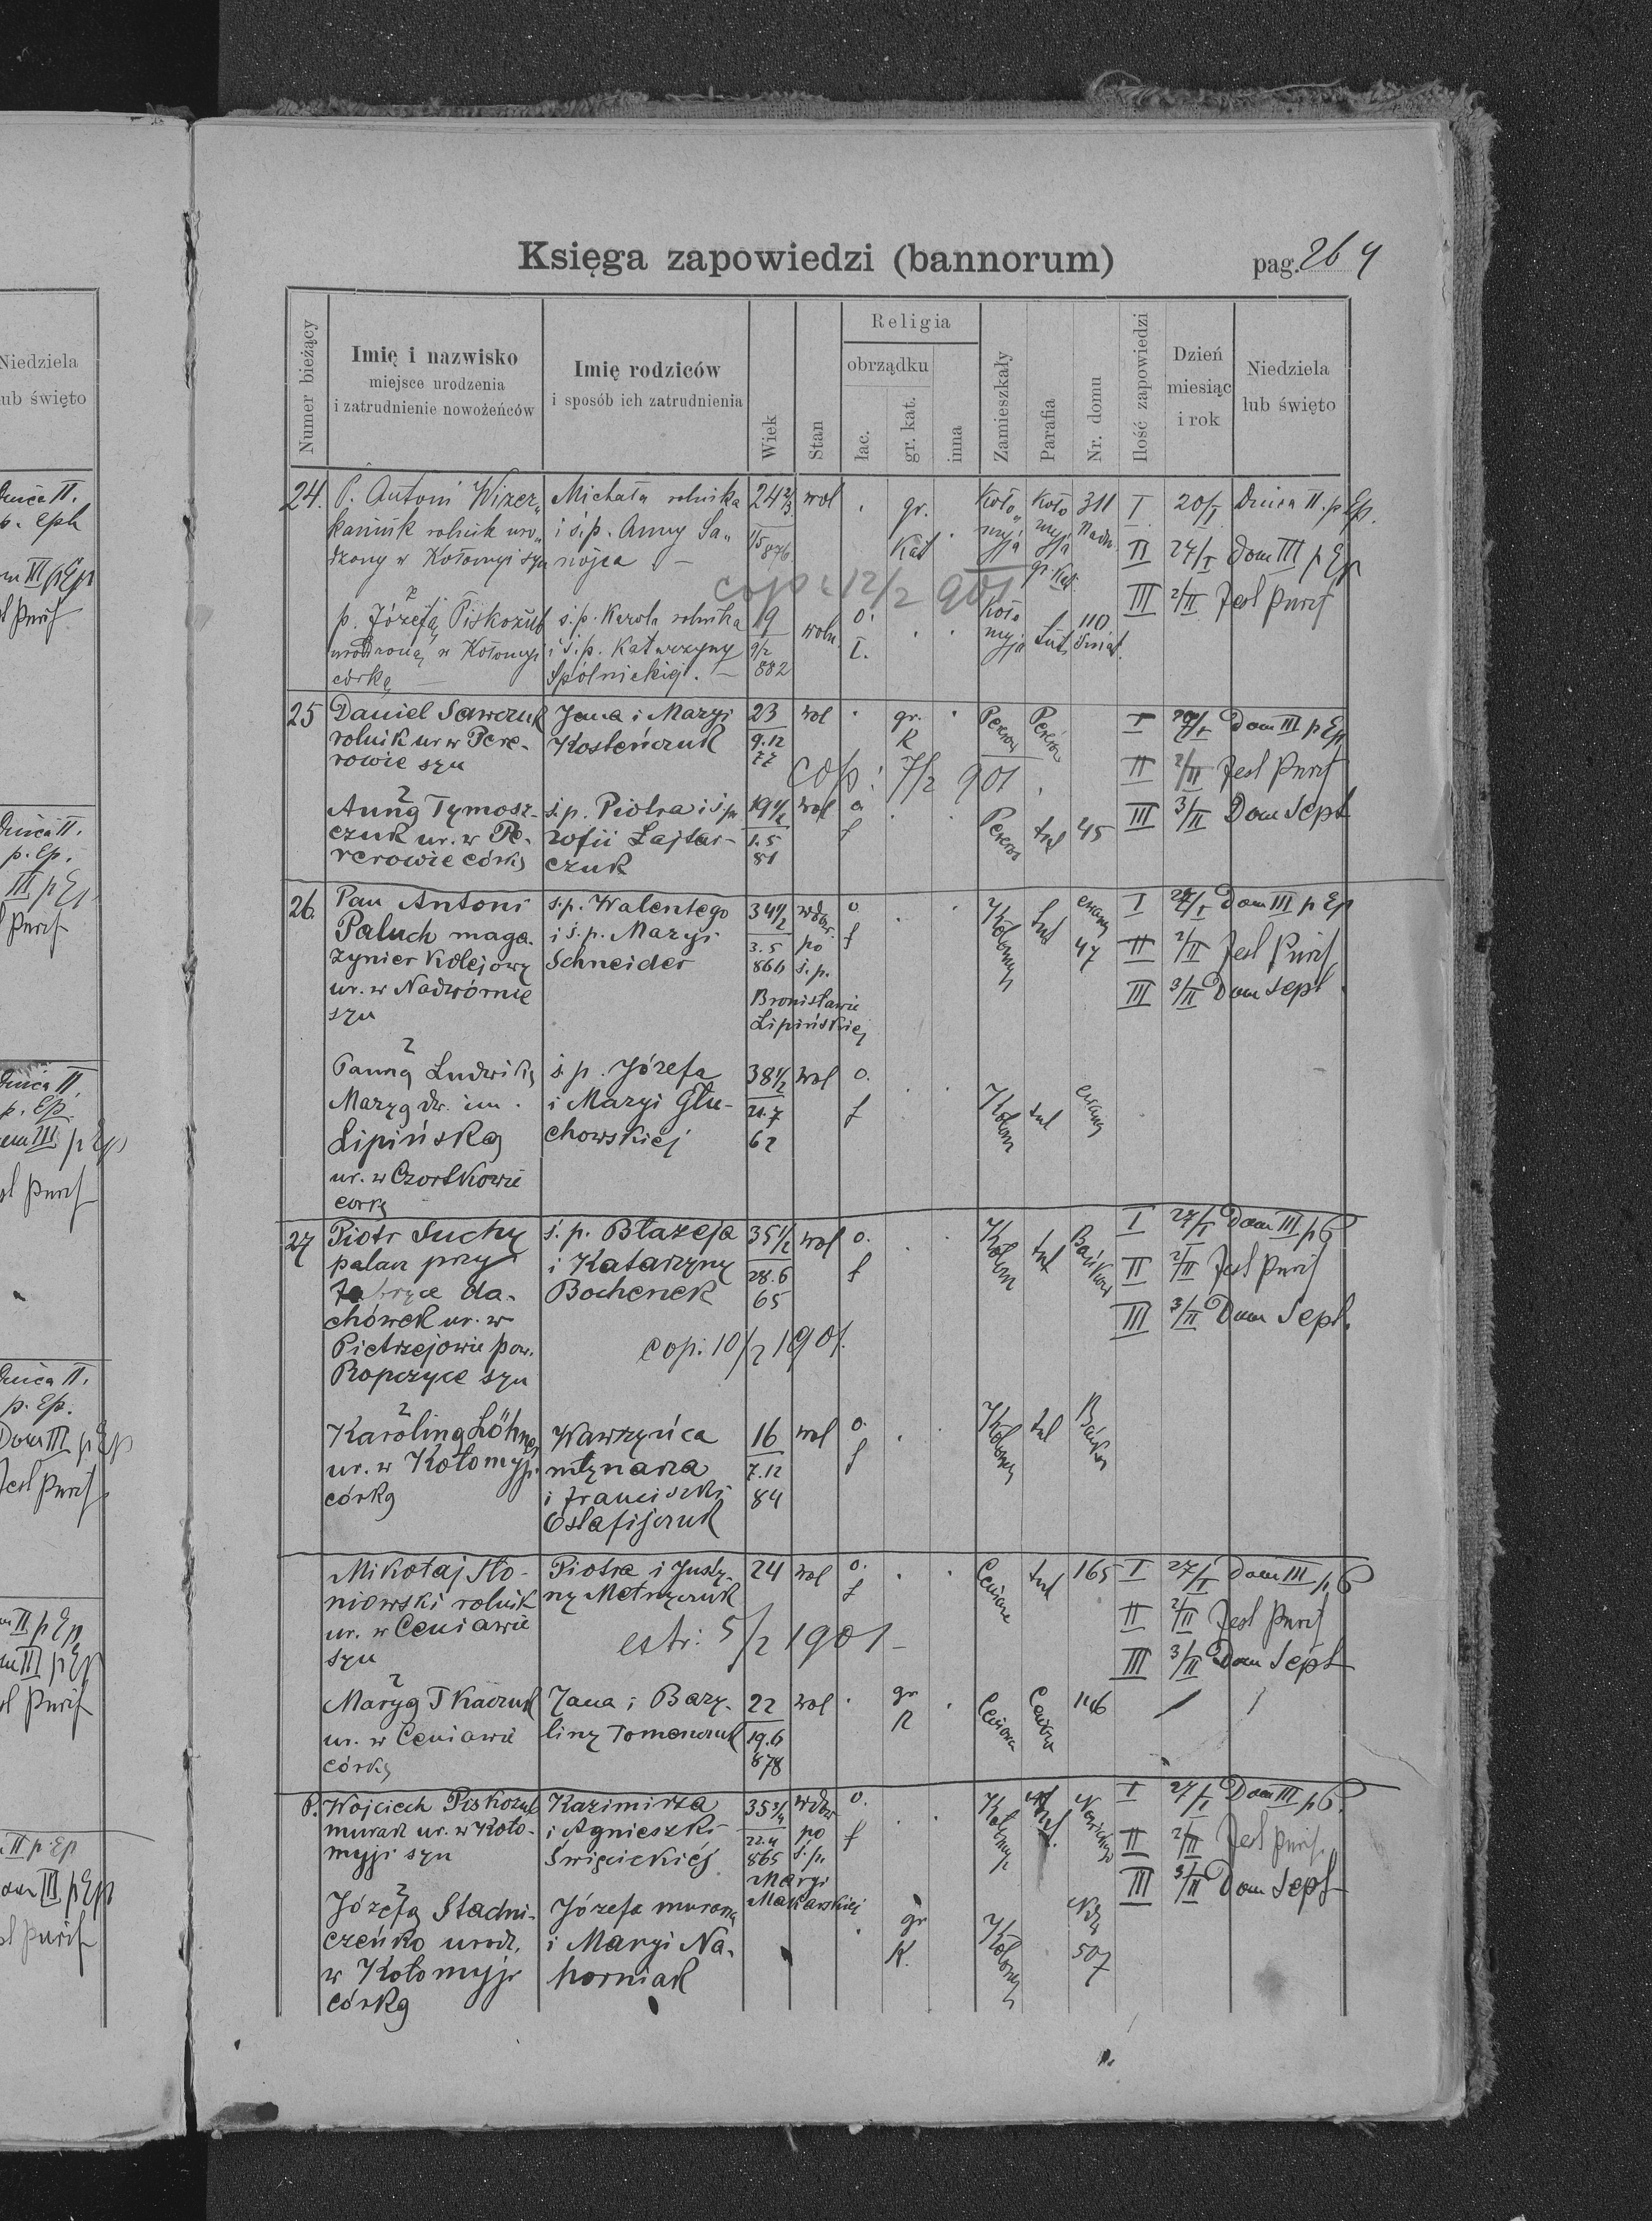 Księga zapowiedzi (bannorum)
pag. 264
Numer bieżący
Imię i nazwisko
miejsce urodzenia
i zatrudnienie nowożeńców
Imię rodziców
i sposób ich zatrudnienia
Wiek
Stan
Religia
obrządku
łac.
gr. kat.
inna
Zamieszkały
Parafia
Nr. domu
Ilość zapowiedzi
Dzień
miesiąc
i rok
Niedziela
lub święto
24. P. Antoni Wizer„ Michała rolnika 24 2/3 wol . gr. Koło„ Koło 311 I 20/I Dnica II. p. Ep.
kaniuk rolnik uro„ i ś.p. Anny Sa„ 1/5 876 Kat . myja myja Nadw. II 27/I Dom III p Ep
dzony w Kołomyi syn nojca — gr. Kat.
cop: 12/2 901 III 2/II Fest Purif
z
p. Józefą Piskozub ś.p. Karola rolnika 19 woln. o. . . Koło 110
urodzoną w Kołomyi i ś.p. Katarzyny 9/2 ł. myja tut. Śniat.
córką — Spólnickiej. — 882
25 Daniel Sawczuk Jana i Maryi 23 wol . gr. . Pererów Pererów I 27/I Dom III p Ep
rolnik ur w Pere- Kosteńczuk 9.12 K
rowie syn 77 cop: 7/2 901 II 2/II Fest Purif
z
Anną Tymosz- ś.p. Piotra i śp 19 1/2 wol o . . Pererów tut 45 III 3/II Dom Sept
czuk ur. w Pe- Zofii Łajtar- 1.5 ł
rerowie córką czuk 81
26. Pan Antoni ś.p. Walentego 34 1/2 wdow. o . . Kołomyja tut 47 I 27/I Dom III p Ep
Paluch maga- i ś.p. Maryi 3.5 po ł II 2/II Fest Purif
zynier kolejowy Schneider 866 ś.p.
ur. w Nadwórnie Bronisławie III 3/II Dom Sept
syn Lipińskiej
z
Panną Ludwiką ś.p. Józefa 38 1/2 wol o. . .
Maryą dw. im. i Maryi Głu- 21.7 ł Kołom tut
Lipińską chowskiej 62
ur. w Czortkowie
córką
27 Piotr Suchy ś.p. Błażeja 35 1/2 wol o. . . Kołom tut I 27/I Dom III p E
palacz przy i Katarzyny 28.6 ł II 2/II Fest Purif
fabryce da- Bochenek 65
chówek ur. w III 3/II Dom Sept.
Pietrzejowie pow. cop: 10/2 1901.
Ropczyce syn
z
Karoliną Löhne Wawrzyńca 16 wol o. . . Kołomyja tut
ur. w Kołomyji młynarza 7.12 ł
córką i Franciszki 84
Ostafijczuk
Mikołaj Sło- Piotra i Justy- 24 wol o. . . Ceniawa tut 165 I 27/I Dom III p E
niowski rolnik ny Metnyczuk ł
ur. w Ceniawie II 2/II Fest Purif
syn estr: 5/2 1901 — III 3/II Dom Sept
z
Maryą Tkaczuk Jana i Bazy- 22 wol . gr . Ceniawa 146
ur. w Ceniawie liny Tomenczuk 19.6 K
córką 878
P. Wojciech Piskozub Kazimirza 35 3/4 wdow o. . . Kołomyja tut. I 27/I Dom III p E.
murarz ur. w Koło- i Agnieszki 22.4 po ł II 2/II Fest Purif.
myji syn Święcickiej 865 ś.p.
Maryi III 3/II Dom Sept
z
Józefą Stadni- Józefa murarza Makarskiej
czeńko urodz. i Maryi Na- . gr Kołomyja 507
w Kołomyji horniak K.
córką
Niedziela
lub święto
Dnica II.
p. Eph
III p Ep
Purif
Dnica II.
p. Ep.
III p Ep
Purif
Dnica II
p. Ep.
Dom III p Ep
Purif
Dnica II.
p. Ep.
Dom III p Ep
Fest Purif
II p Ep
III p Ep
Purif
II p. Ep
Dom III p Ep
Purif